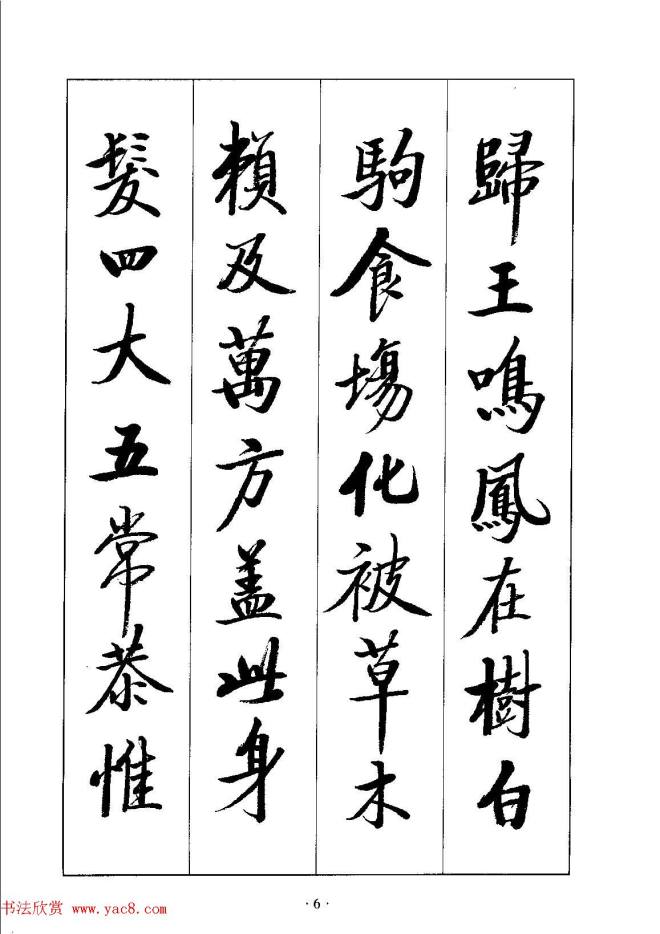 歸王鳴鳳在樹白
駒食場化被草木
賴及萬方蓋此身
髮四大五常恭惟
·6·
书法欣赏 www.yac8.com